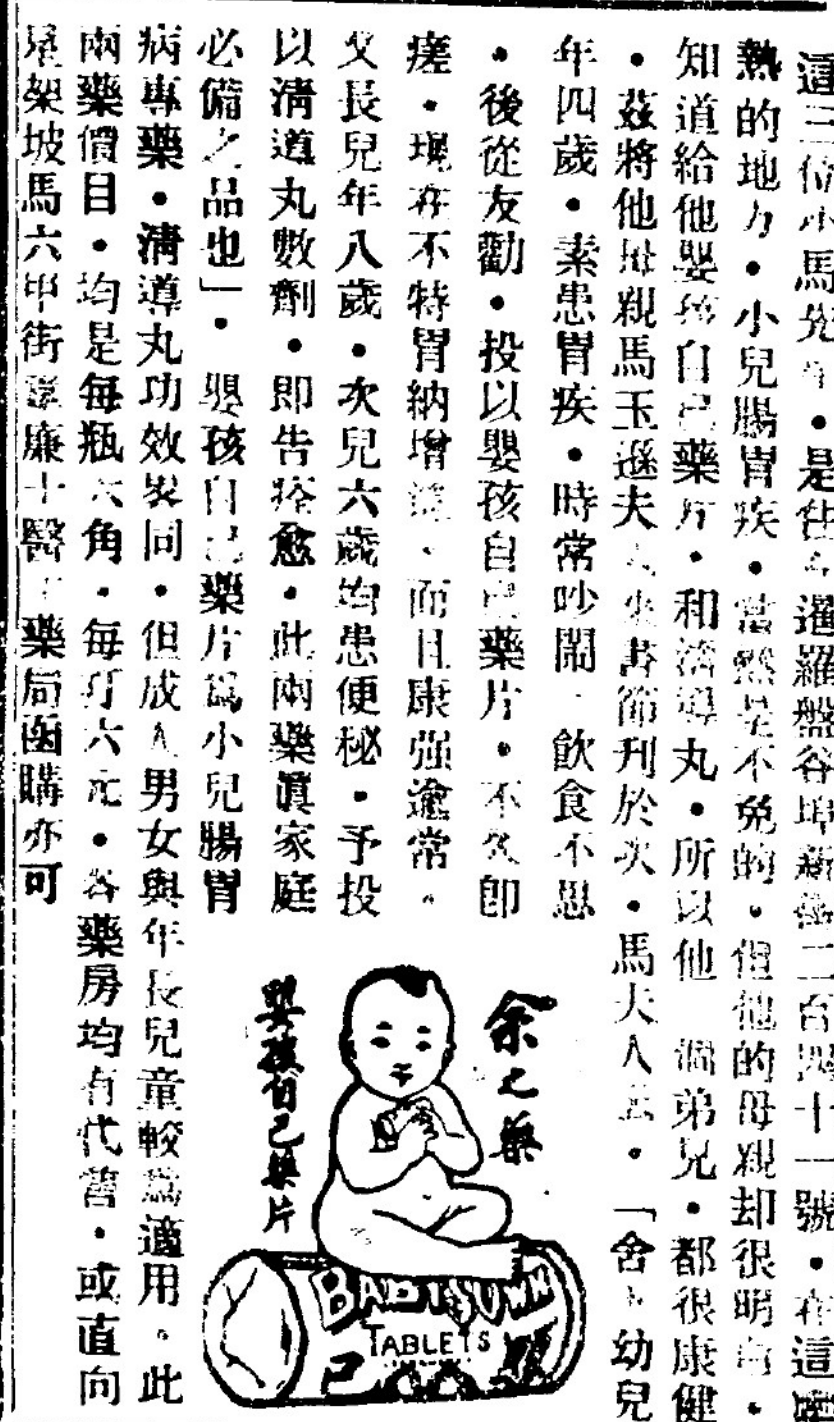 這三位小馬先生•是住在暹羅盤谷埠新街二百四十一號•在這
熱的地方•小兒腸胃疾•當然是不免的•但他的母親却很明白•
知道給他嬰孩自己藥片•和清導丸•所以他 個弟兄•都很康健
•茲將他母親馬玉遜夫人來書節刊於次•馬夫人云•「舍下幼兒
年四歲•素患胃疾•時常吵鬧•飲食不思
•後從友勸•投以嬰孩自己藥片•不久卽
瘥•現在不特胃納增 、而且康强逾常。
又長兒年八歲•次兒六歲均患便秘•予投
以清導丸數劑•即告痊愈•此兩藥眞家庭
必備之品也」•嬰孩自己藥片爲小兒腸胃
病專藥•清導丸功效畧同•但成人男女與年長兒童較爲適用。此
兩藥價目•均是每瓶六角•每打六元•各藥房均有代售•或直向
星架坡馬六甲街韋廉士醫士藥局函購亦可
余之藥
嬰孩自己藥片
BABY'S OWN
TABLETS
己